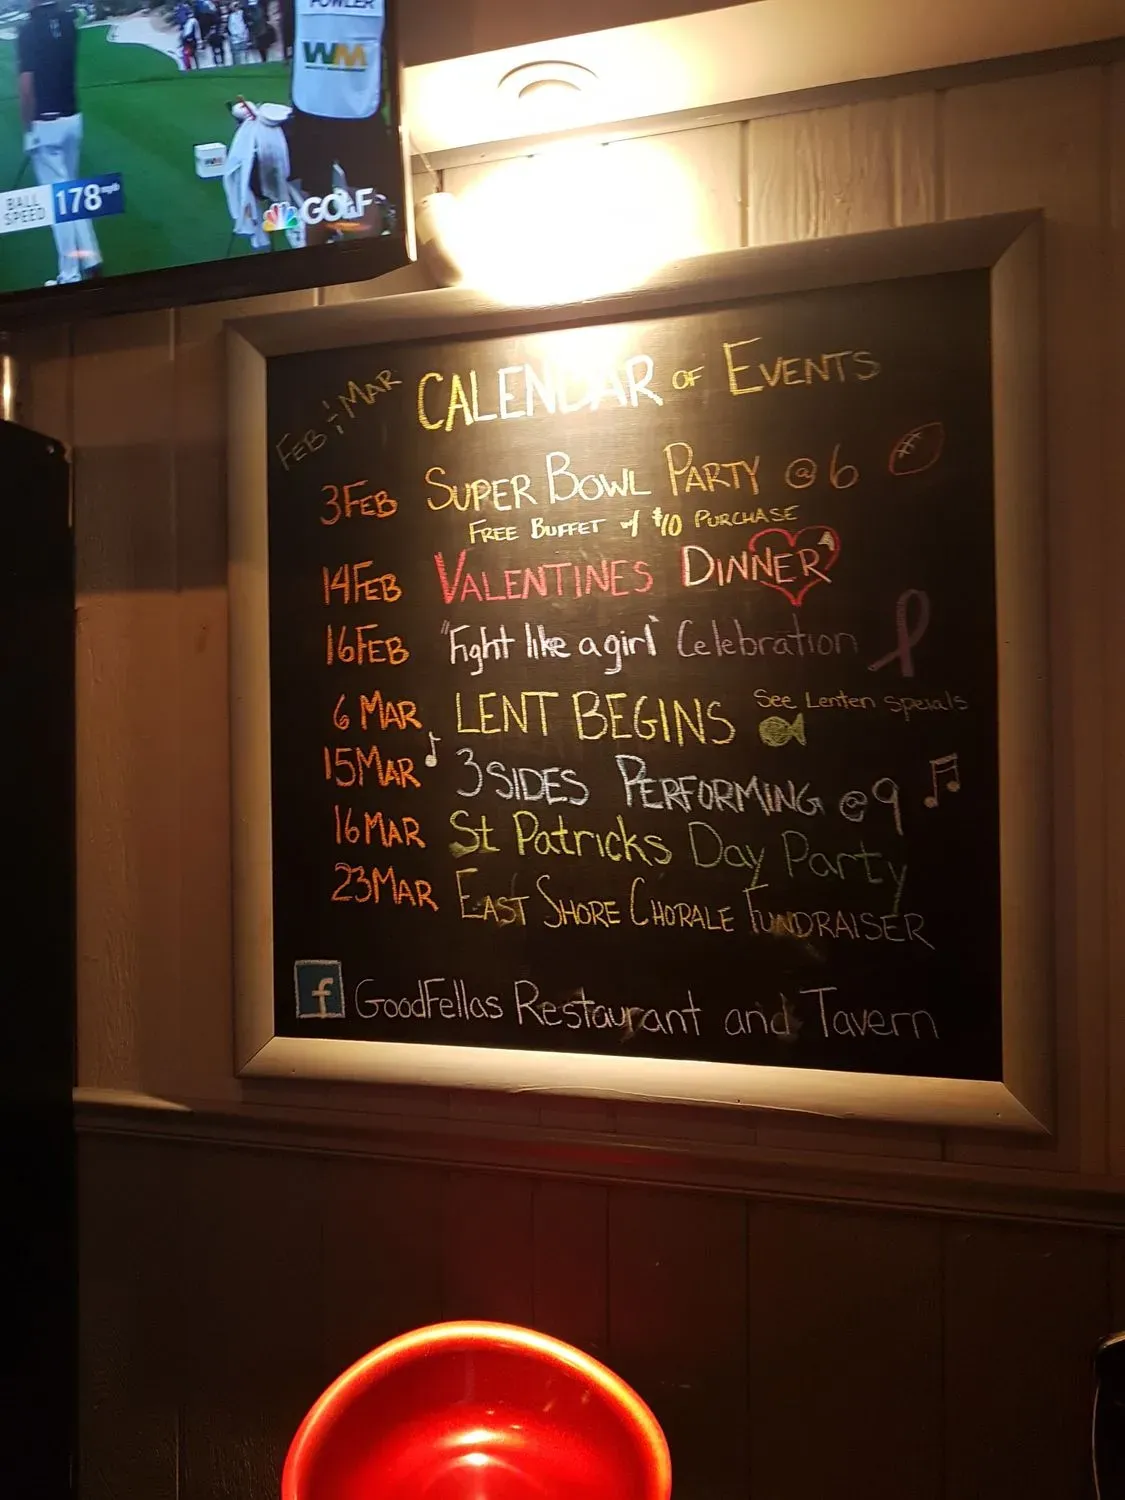 FOWLER
WM
BALL SPEED 178 mph
GOLF
FEB & MAR CALENDAR OF EVENTS
3 FEB SUPER BOWL PARTY @ 6
FREE BUFFET w/ $10 PURCHASE
14 FEB VALENTINES DINNER
16 FEB "Fight like a girl" Celebration
6 MAR LENT BEGINS See Lenten specials
15 MAR 3 SIDES PERFORMING @ 9
16 MAR St Patricks Day Party
23 MAR EAST SHORE CHORALE FUNDRAISER
f GOODFELLAS RESTAURANT and Tavern